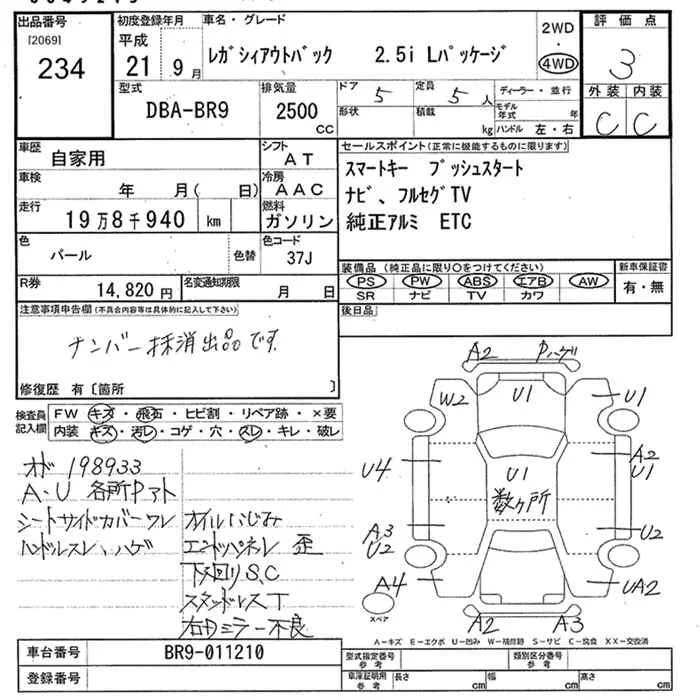 出品番号
[2069]
234
初度登録年月
平成
21 9月
車名・グレード
レガシィアウトバック 2.5i Lパッケージ
2WD
・
4WD
評価点
3
外装 内装
C C
型式
DBA-BR9
排気量
2500
cc
ドア
5
定員
5人
形状
積載
kg
ディーラー・並行
モデル年式 年
ハンドル 左・右
車歴
自家用
シフト
AT
車検
年 月( 日)
冷房
AAC
走行
19万8千940 km
燃料
ガソリン
色
パール
色替
色コード
37J
R券
14,820円
名変通知期限
月 日
セールスポイント(正常に機能するものに限ります)
スマートキー プッシュスタート
ナビ、フルセグTV
純正アルミ ETC
装備品(純正品に限り○をつけてください)
PS・PW・ABS・エアB・AW
SR ナビ TV カワ
新車保証書
有・無
後日品
注意事項申告欄(不具合内容等は具体的に記入して下さい)
ナンバー抹消出品です
修復歴 有〔箇所 〕
検査員記入欄
FW キズ・飛石・ヒビ割・リペア跡・×要
内装 キズ・汚レ・コゲ・穴・スレ・キレ・破レ
オド 198933
A・U 各所Pアト
シートサイドカバーワレ
ハンドルスレ、ハゲ
オイルにじみ
エンドパネル 歪
下回りS、C
スタンドレスT
右Dミラー不良
A2 Pハゲ
W2 U1 U1
U4 A2 U1
U1
数ヶ所
A3 U2 U2
A4 UA2
スペア
A2 A3
A-キズ E-エクボ U-凹み W-補修跡 S-サビ C-腐食 XX-交換済
車台番号
BR9-011210
登録番号
型式指定番号 参考
類別区分番号 参考
車庫証明用 参考
長さ cm
幅 cm
高さ cm